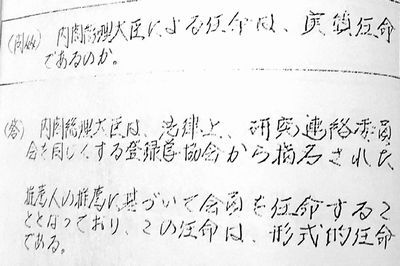 (問 ) 内閣総理大臣による任命は、実質任命
であるのか。
(答) 内閣総理大臣は、法律上、研究連絡委員
会を同じくする登録学協会から指名された
推薦人の推薦に基づいて会員を任命するこ
ととなっており、この任命は、形式的任命
である。